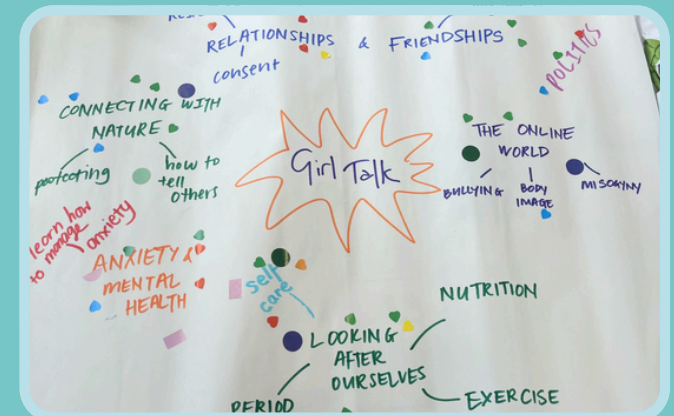 RELATIONSHIPS & FRIENDSHIPS
consent
POLITICS
CONNECTING WITH
NATURE
protecting
how to
tell
others
Girl Talk
THE ONLINE
WORLD
BULLYING
BODY
IMAGE
MISOGYNY
learn how
to manage
anxiety
ANXIETY &
MENTAL
HEALTH
self
care
LOOKING
AFTER
OURSELVES
NUTRITION
PERIOD
EXERCISE